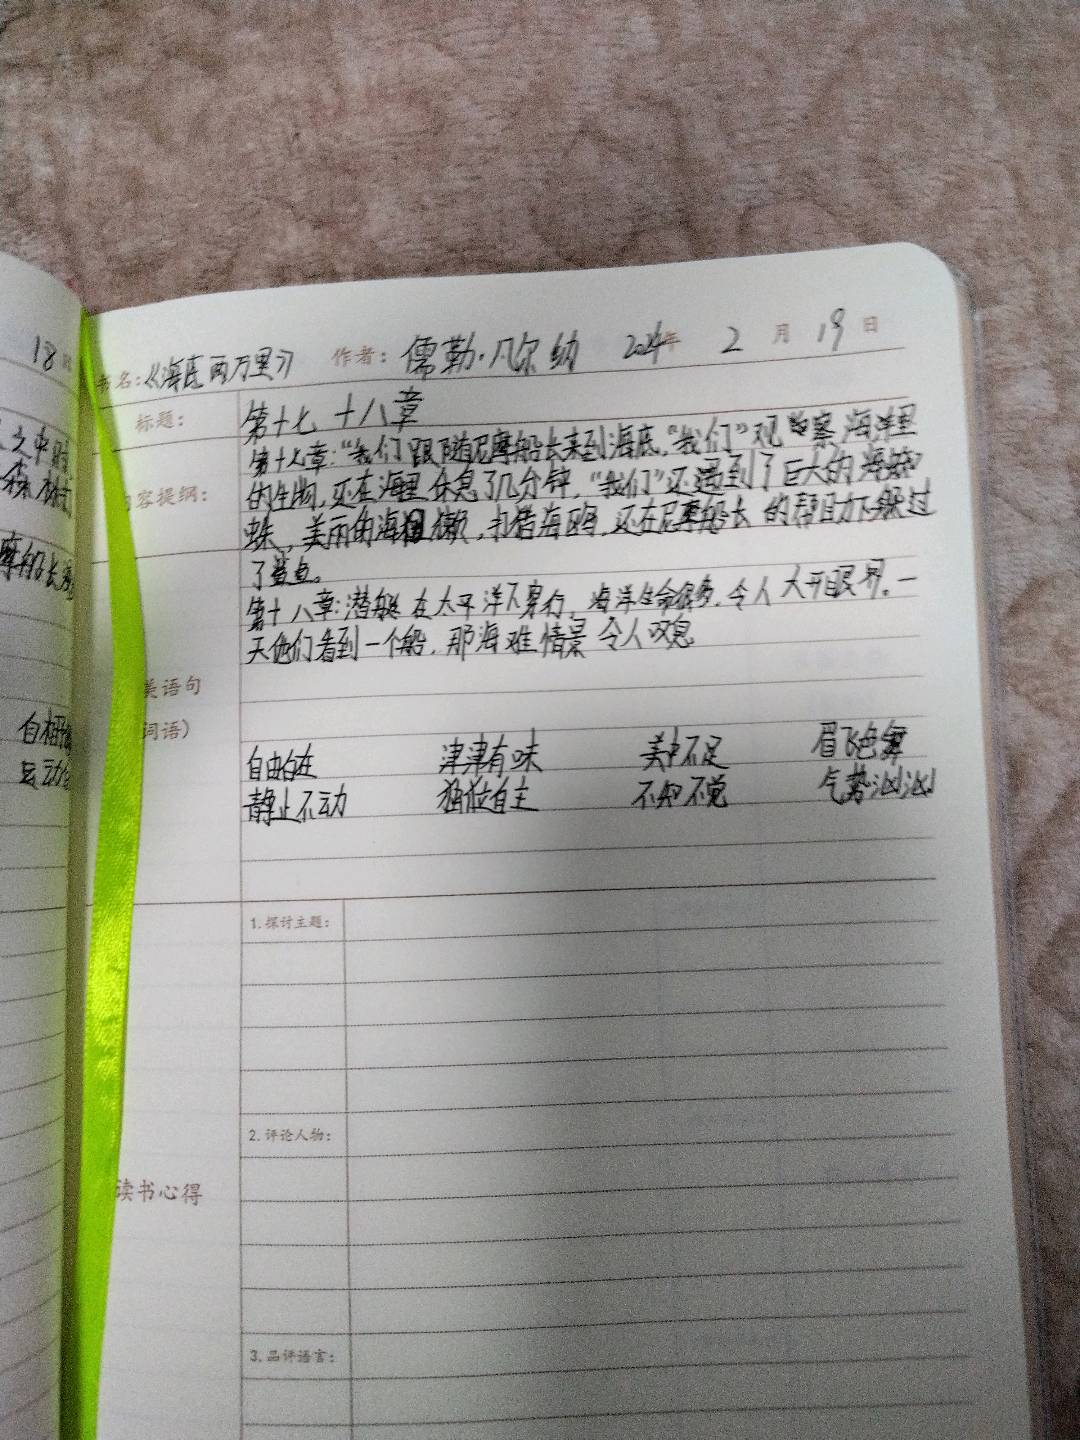 18
书名:《海底两万里》 作者: 儒勒·凡尔纳 2024年 2 月 19 日
之中时
标题: 第十七 十八章
第十七章:“我们”跟随尼摩船长来到海底,“我们”观察海洋里
内容提纲: 的生物,还在海里休息了几分钟,“我们”还遇到了巨大的海蜘
蛛,美丽的海獭,打猎海鸥,还在尼摩船长的帮助下躲过
摩船长
了鲨鱼。
第十八章:潜艇在太平洋下穿行,海洋生命很多,令人大开眼界。一
天他们看到一个船,那海难情景令人叹息
美语句
词语)
自由自在 津津有味 美中不足 眉飞色舞
静止不动 独立自主 不知不觉 气势汹汹
1.探讨主题:
2.评论人物:
读书心得
3.品评语言: